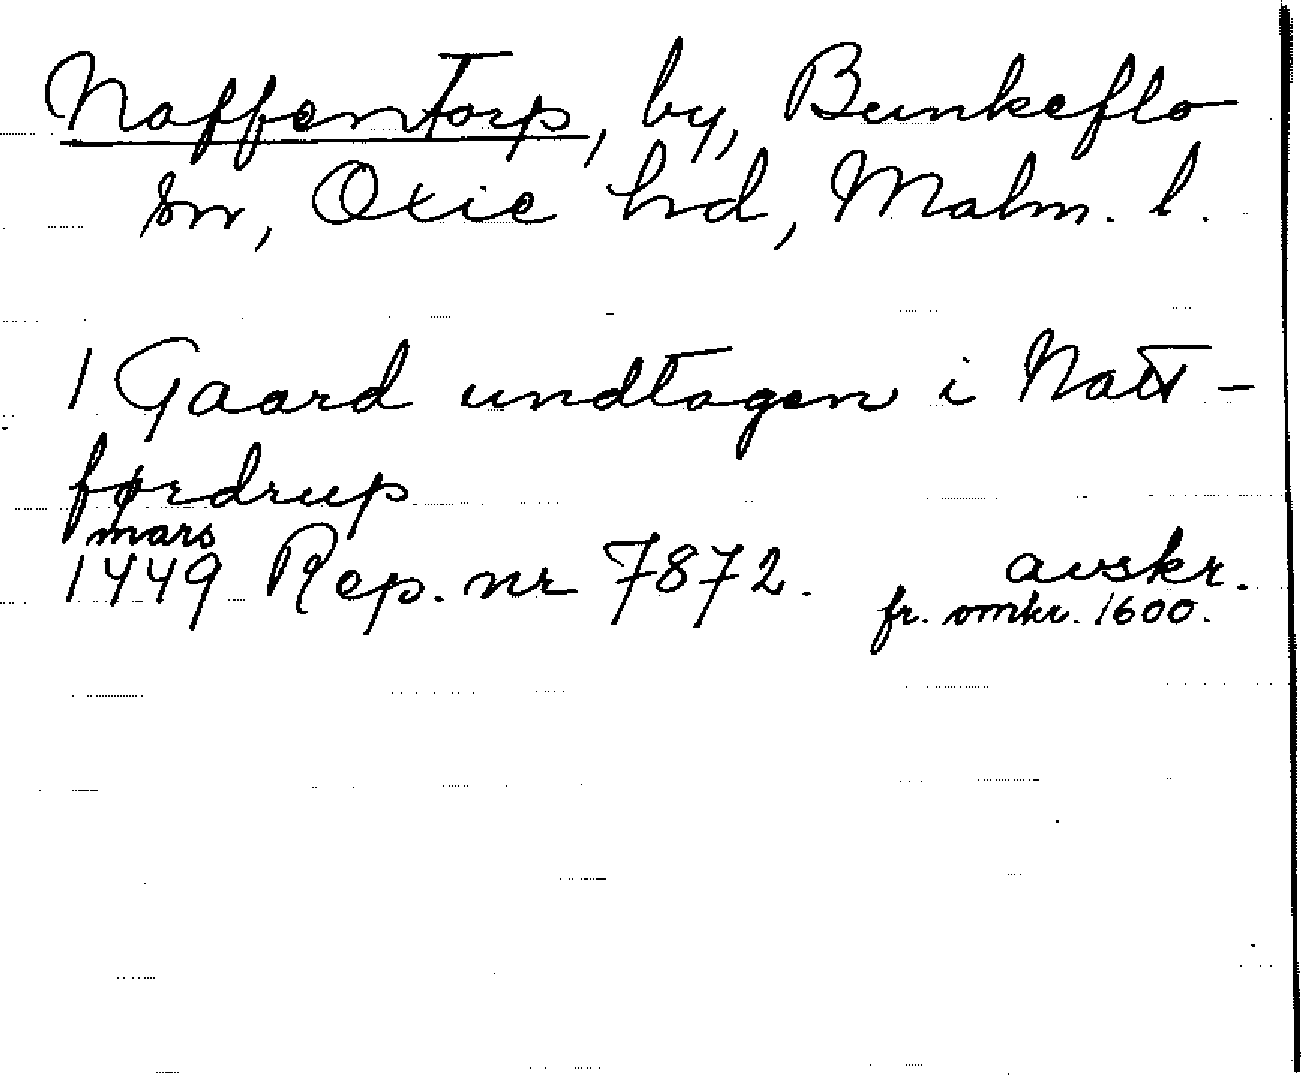 Naffentorp, by, Bunkeflo
sn, Oxie hd, Malm. l.
1 Gaard undtagen i Natt-
førdrup
mars
1449 Rep. nr 7872. avskr.
fr. omkr. 1600.